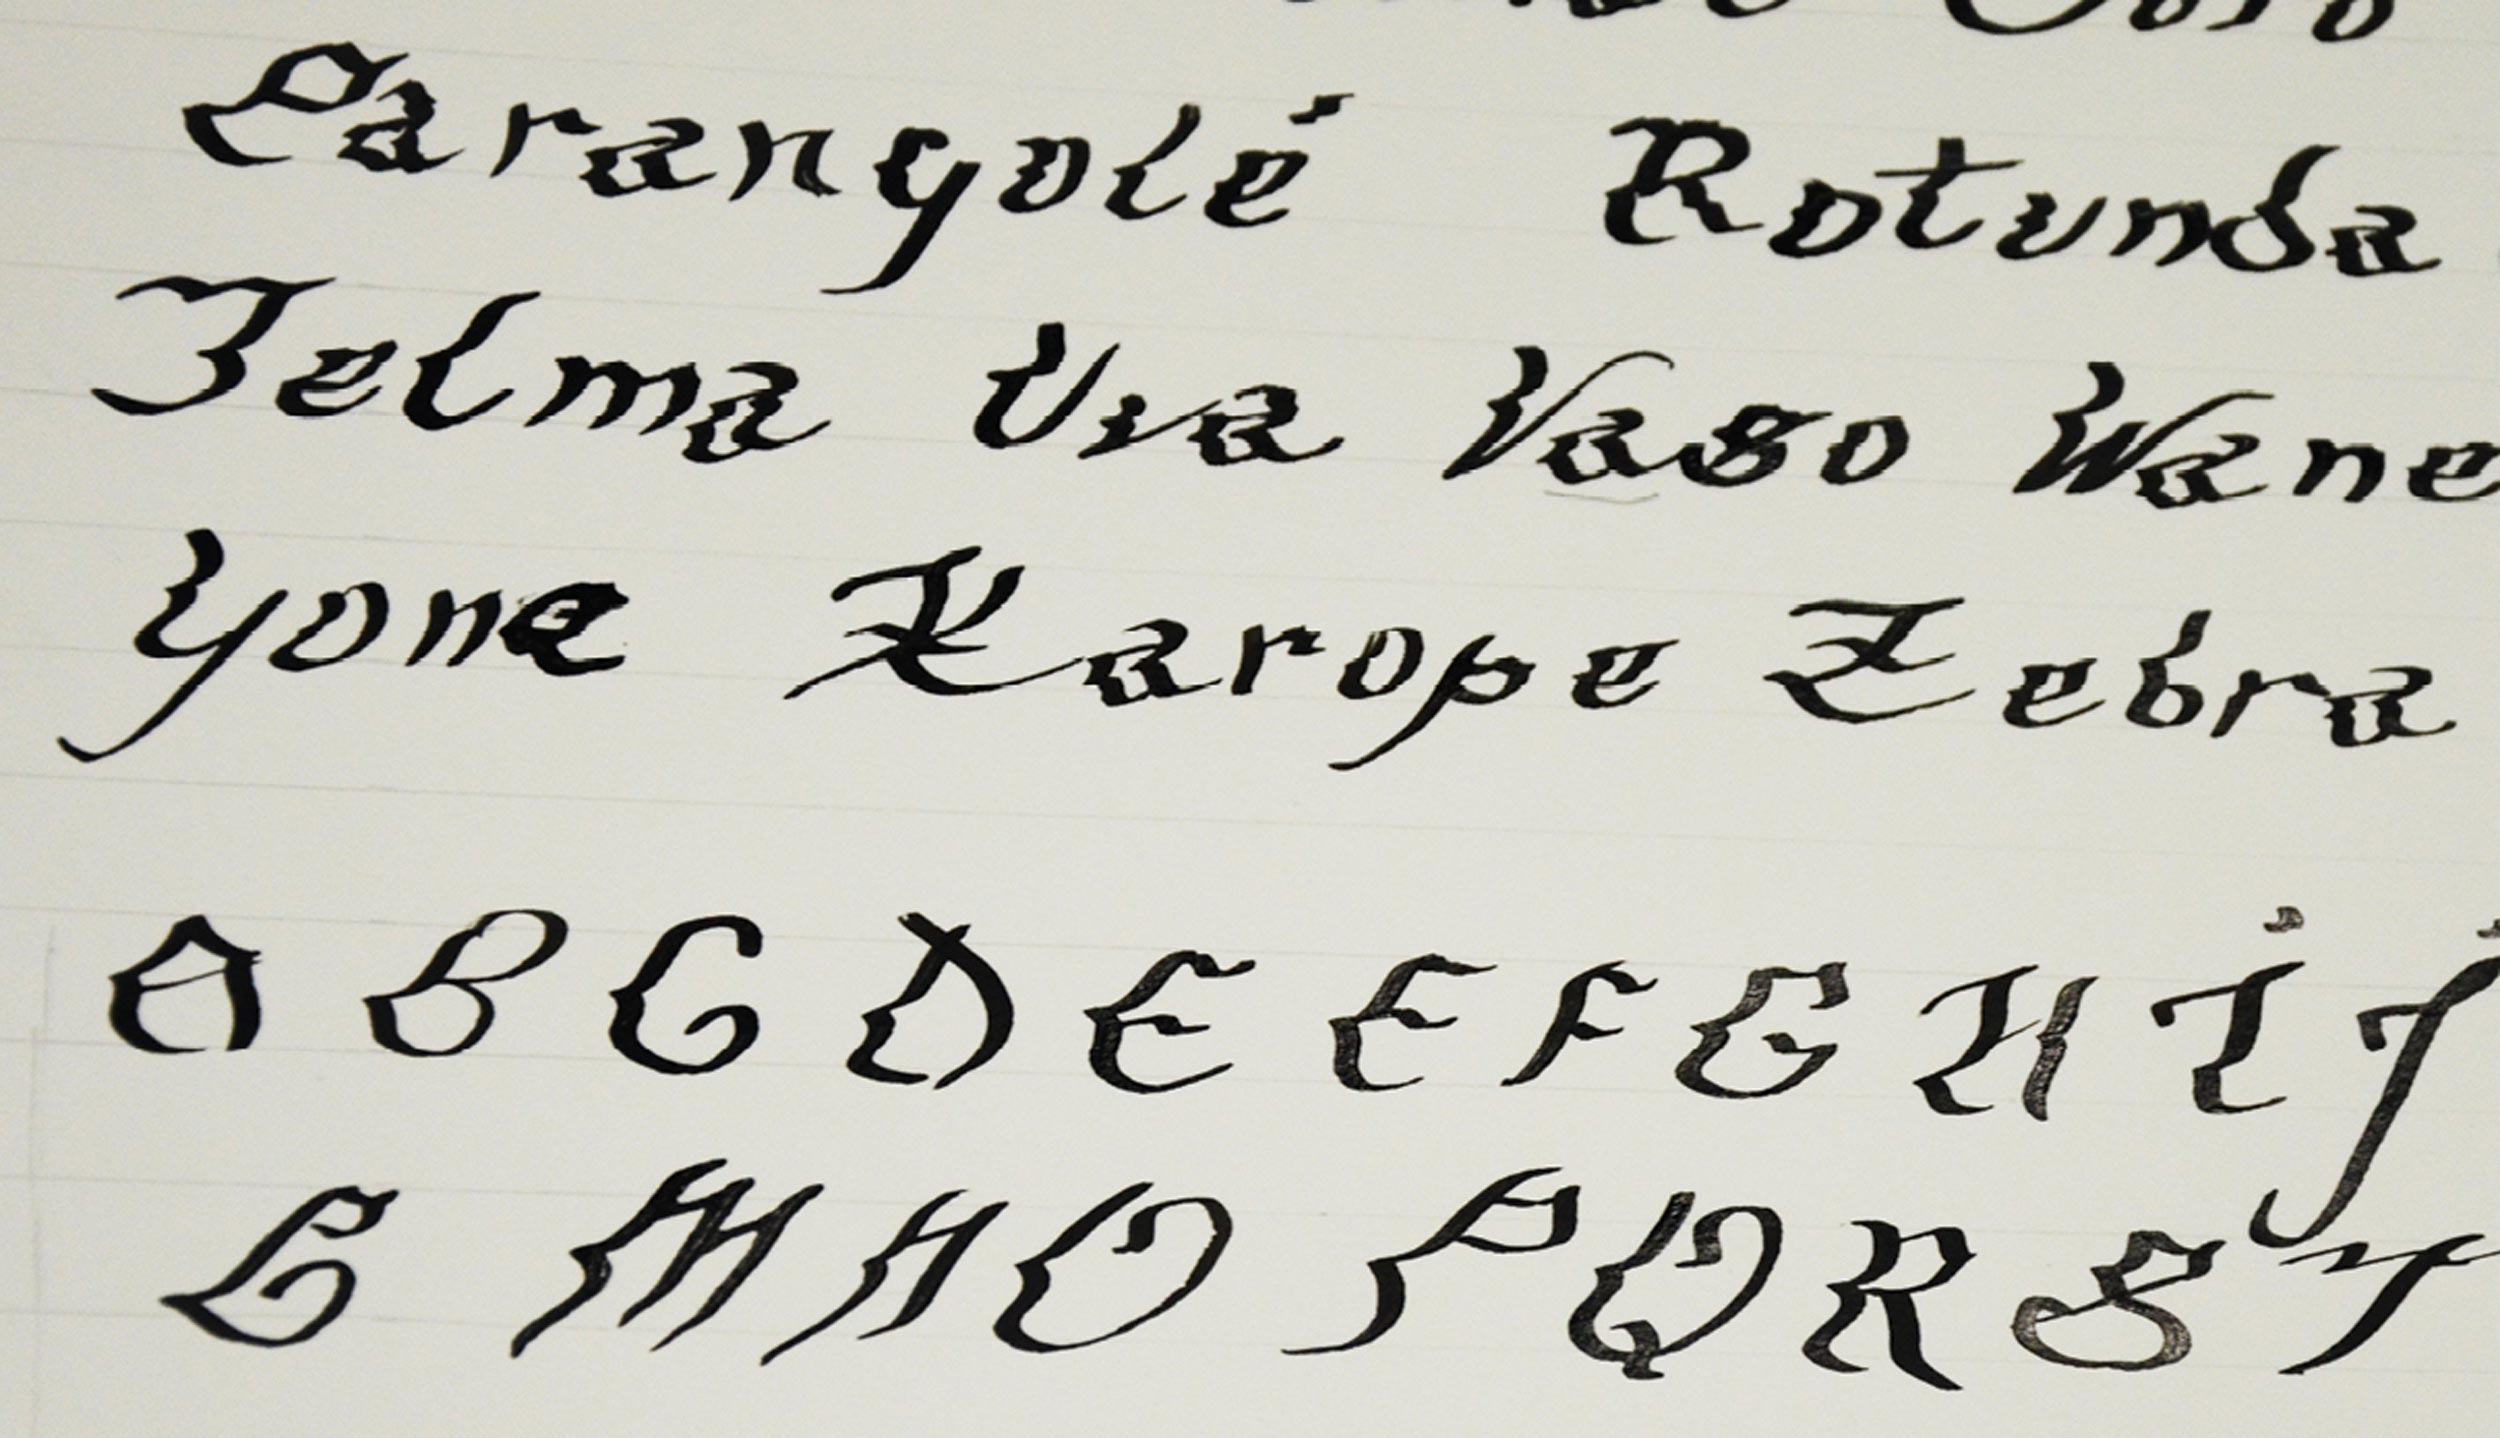 Parangolé Rotunda
Telma Uva Vaso Wane
Yone Xarope Zebra
A B C D E E F G H I J
L M N O P Q R S T